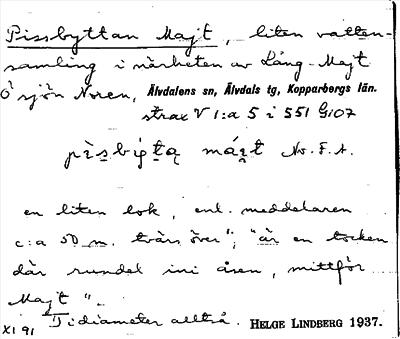 Pissbyttan Majt, liten vatten-
samling i närheten av Lång-Majt
Ö sjön Noren, Älvdalens sn, Älvdals tg, Kopparbergs län.
strax V 1:a 5 i 551 G107
No. F. A.
en liten lok, enl. meddelaren
c:a 50 m. tvärs över", "är en tocken
där rundel ini åsen, mittför
Majt".
XI 91 I diameter alltså. HELGE LINDBERG 1937.